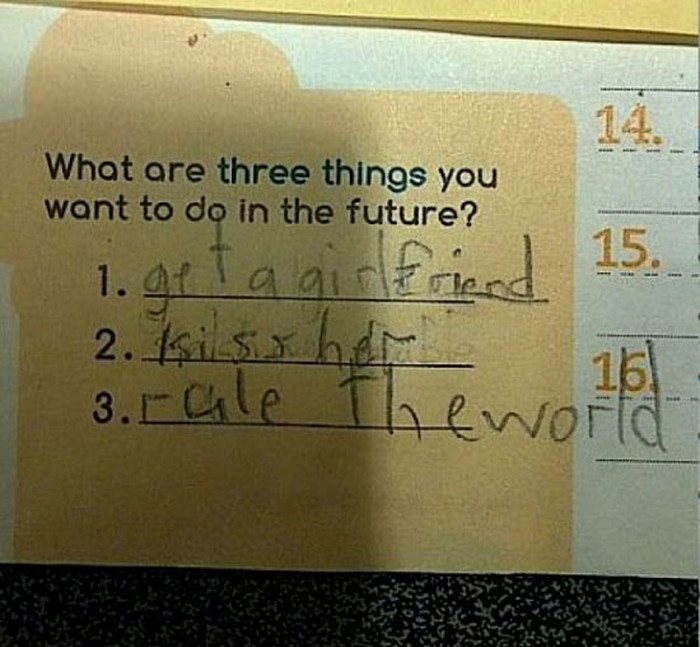 What are three things you
want to do in the future?
1. get a girlfriend
2. kilssx her
3. rule The world
14.
15.
16.